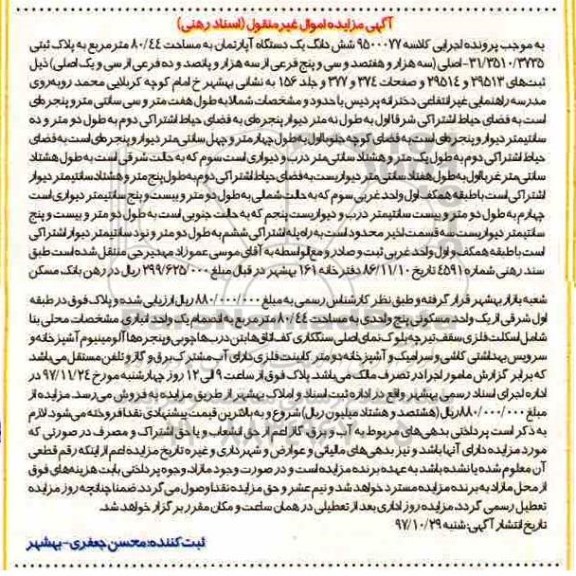 آگهی مزایده اموال غیرمنقول (اسناد رهنی)
به موجب پرونده اجرایی کلاسه ۹۵۰۰۰۷۷ شش دانگ یک دستگاه آپارتمان به مساحت ۸۰/۴۴ مترمربع به پلاک ثبتی
۳۱/۳۵۱۰/۳۷۳۵-اصلی (سه هزار و هفتصد و سی و پنج فرعی از سه هزار و پانصد و ده فرعی از سی و یک اصلی) ذیل
ثبت‌های ۲۹۵۱۳ و ۲۹۵۱۴ و صفحات ۳۷۴ و ۳۷۷ و جلد ۱۵۶ به نشانی بهشهر خ امام کوچه کربلایی محمد روبه‌روی
مدرسه راهنمایی غیرانتفاعی دخترانه پردیس با حدود و مشخصات شمالا به طول هفت متر و سی سانتی متر و پنجره‌ای
است به فضای حیاط اشتراکی شرقا اول به طول نه متر دیوار و پنجره‌ای به فضای حیاط اشتراکی دوم به طول دو متر و ده
سانتیمتر دیوار و پنجره‌ای است به فضای کوچه جنوبا اول به طول چهار متر و چهل سانتی‌متر دیوار و پنجره‌ای است به فضای
حیاط اشتراکی دوم به طول یک متر و هشتاد سانتی متر درب و دیواری است سوم که به حالت شرقی است به طول هشتاد
سانتی‌متر غربا اول به طول هفتاد سانتی متر دیواریست به فضای حیاط اشتراکی دوم به طول پنج متر و هشتاد سانتیمتر دیوار
اشتراکی است با طبقه همکف اول واحد غربی سوم که به حالت شمالی به طول دو متر و بیست و پنج سانتیمتر دیواری است
چهارم به طول دو متر و بیست سانتیمتر درب و دیواریست پنجم که به حالت جنوبی است به طول دو متر و بیست و پنج
سانتیمتر دیواریست سه قسمت اخیر محدود است به راه پله اشتراکی ششم به طول دو متر و نود سانتیمتر دیوار اشتراکی
است با طبقه همکف و اول واحد غربی ثبت و صادر و مع‌الواسطه به آقای موسی عموزاد مهدیرجی منتقل شده است طبق
سند رهنی شماره ۴۵۹۱ تاریخ ۸۶/۱۱/۱۰ دفترخانه ۱۶۱ بهشهر در قبال مبلغ ۲۹۹/۶۲۵/۰۰۰ ریال در رهن بانک مسکن
شعبه بازار بهشهر قرار گرفته و طبق نظر کارشناس رسمی به مبلغ ۸۸۰/۰۰۰/۰۰۰ ریال ارزیابی شده و پلاک فوق در طبقه
اول شرقی از یک واحد مسکونی پنج واحدی به مساحت ۸۰/۴۴ متر مربع به انضمام یک واحد انباری مشخصات محلی بنا
شامل اسکلت فلزی سقف تیرچه بلوک نمای اصلی سنگکاری کف اتاق‌ها بتن درب‌ها چوبی و پنجره‌ها آلومینیوم آشپزخانه و
سرویس بهداشتی کاشی و سرامیک و آشپزخانه دو متر کابینت فلزی دارای آب مشترک برق و گاز و تلفن مستقل می‌باشد
که برابر گزارش مامور اجرا در تصرف مالک می‌باشد. پلاک فوق از ساعت ۹ الی ۱۲ روز چهارشنبه مورخ ۹۷/۱۱/۲۴ در
اداره اجرای اسناد رسمی بهشهر واقع در اداره ثبت اسناد و املاک بهشهر از طریق مزایده به فروش می‌رسد. مزایده از
مبلغ ۸۸۰/۰۰۰/۰۰۰ریال (هشتصد و هشتاد میلیون ریال) شروع و به بالاترین قیمت پیشنهادی نقدا فروخته می‌شود. لازم
به ذکر است پرداختی بدهی‌های مربوط به آب و برق گاز اعم از حق انشعاب و یا حق اشتراک و مصرف در صورتی که
مورد مزایده دارای آنها باشد و نیز بدهی‌های مالیاتی و عوارض و شهرداری و غیره تا ریخ مزایده اعم از اینکه رقم قطعی
آن معلوم شده یا نشده باشد به عهده برنده مزایده است و در صورت وجود مازاد، وجوه پرداختی بابت هزینه‌های فوق
از محل مازاد به برنده مزایده مسترد خواهد شد و نیم عشر و حق مزایده نقدا وصول می گردد. ضمنا چنانچه روز مزایده
تعطیل رسمی گردد، مزایده روز اداری بعد از تعطیلی در همان ساعت و مکان مقرر برگزار خواهد شد.
تاریخ انتشار آگهی: شنبه ۹۷/۱۰/۲۹
ثبت کننده: محسن جعفری-بهشهر